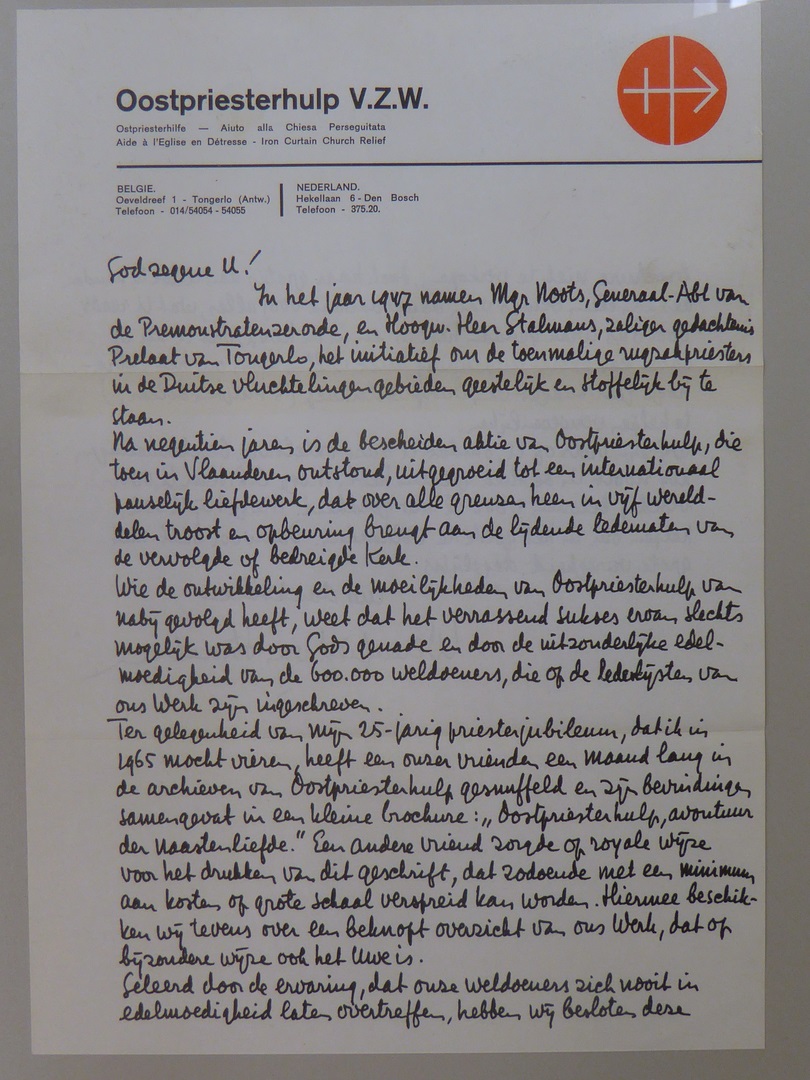 Oostpriesterhulp V.Z.W.
Ostpriesterhilfe — Aiuto alla Chiesa Perseguitata
Aide à l'Eglise en Détresse - Iron Curtain Church Relief
BELGIE.
Oeveldreef 1 - Tongerlo (Antw.)
Telefoon - 014/54054 - 54055
NEDERLAND.
Hekellaan 6 - Den Bosch
Telefoon - 375.20.
God zegene U!
In het jaar 1947 namen Mgr Noots, Generaal-Abt van
de Premonstratenzerorde, en Hoogw. Heer Stalmans, zaliger gedachtenis
Prelaat van Tongerlo, het initiatief om de toenmalige rugzakpriesters
in de Duitse vluchtelingengebieden geestelijk en stoffelijk bij te
staan.
Na negentien jaren is de bescheiden aktie van Oostpriesterhulp, die
toen in Vlaanderen ontstond, uitgegroeid tot een internationaal
pauselijk liefdewerk, dat over alle grenzen heen in vijf wereld-
delen troost en opbeuring brengt aan de lijdende ledematen van
de vervolgde of bedreigde Kerk.
Wie de ontwikkeling en de moeilijkheden van Oostpriesterhulp van
nabij gevolgd heeft, weet dat het verrassend sukses ervan slechts
mogelijk was door Gods genade en door de uitzonderlijke edel-
moedigheid van de 600.000 weldoeners, die op de ledenlijsten van
ons Werk zijn ingeschreven.
Ter gelegenheid van mijn 25-jarig priesterjubileum, dat ik in
1965 mocht vieren, heeft een onzer vrienden een maand lang in
de archieven van Oostpriesterhulp gesnuffeld en zijn bevindingen
samengevat in een kleine brochure: „Oostpriesterhulp, avontuur
der naastenliefde." Een andere vriend zorgde op royale wijze
voor het drukken van dit geschrift, dat zodoende met een minimum
aan kosten op grote schaal verspreid kan worden. Hiermee beschik-
ken wij tevens over een beknopt overzicht van ons Werk, dat op
bijzondere wijze ook het Uwe is.
Geleerd door de ervaring, dat onze weldoeners zich nooit in
edelmoedigheid laten overtreffen, hebben wij besloten deze